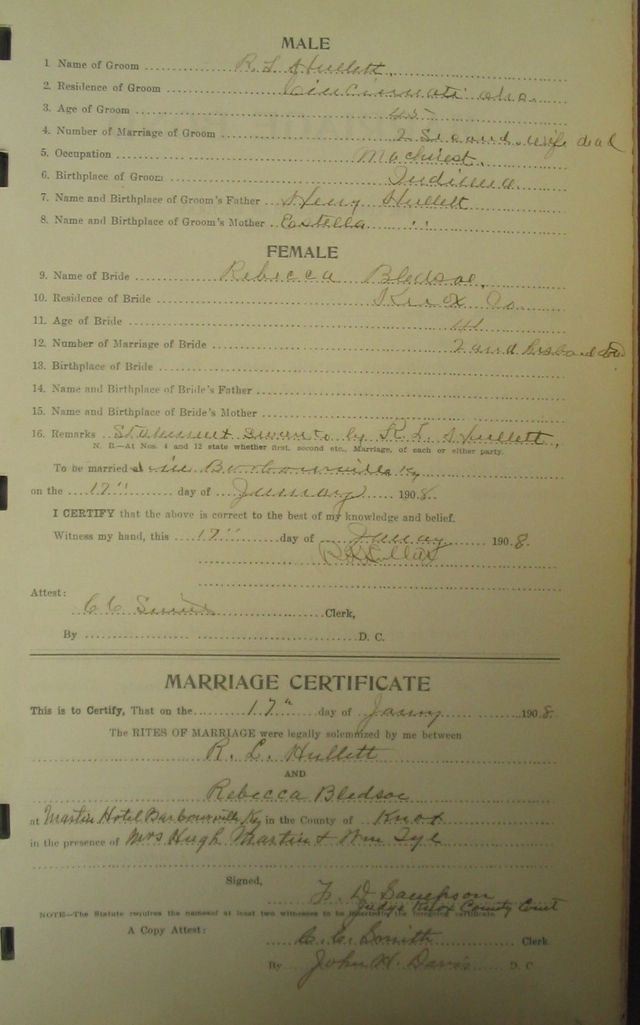 MALE
1. Name of Groom R. L. Hullett.
2. Residence of Groom Cincinnati Ohio.
3. Age of Groom 45
4. Number of Marriage of Groom 2 Second. wife dead
5. Occupation Machinest.
6. Birthplace of Groom Indiana
7. Name and Birthplace of Groom's Father Henry Hullett
8. Name and Birthplace of Groom's Mother "
FEMALE
9. Name of Bride Rebecca Bledsoe.
10. Residence of Bride Knox Co
11. Age of Bride
12. Number of Marriage of Bride 2 and husband
13. Birthplace of Bride
14. Name and Birthplace of Bride's Father
15. Name and Birthplace of Bride's Mother
16. Remarks Statement sworn to by R. L. Hullett.
N. B.—At Nos. 4 and 12 state whether first, second etc., Marriage, of each or either party.
To be married at in Barbourville Ky
on the 17" day of January 1908.
I CERTIFY that the above is correct to the best of my knowledge and belief.
Witness my hand, this 17" day of January 1908.
Attest:
C C Smith Clerk,
By D. C.
MARRIAGE CERTIFICATE
This is to Certify, That on the 17" day of Janry 1908.
The RITES OF MARRIAGE were legally solemnized by me between
R. L. Hullett
AND
Rebecca Bledsoe
at Martin Hotel Barbourville Ky in the County of Knox
in the presence of Mrs Hugh Martin & Wm Tye
Signed, F. D Sampson
Judge Knox County Court
NOTE—The Statute requires the names of at least two witnesses to be inserted in the foregoing certificate
A Copy Attest: C. C. Smith Clerk
By John H. Davis D. C